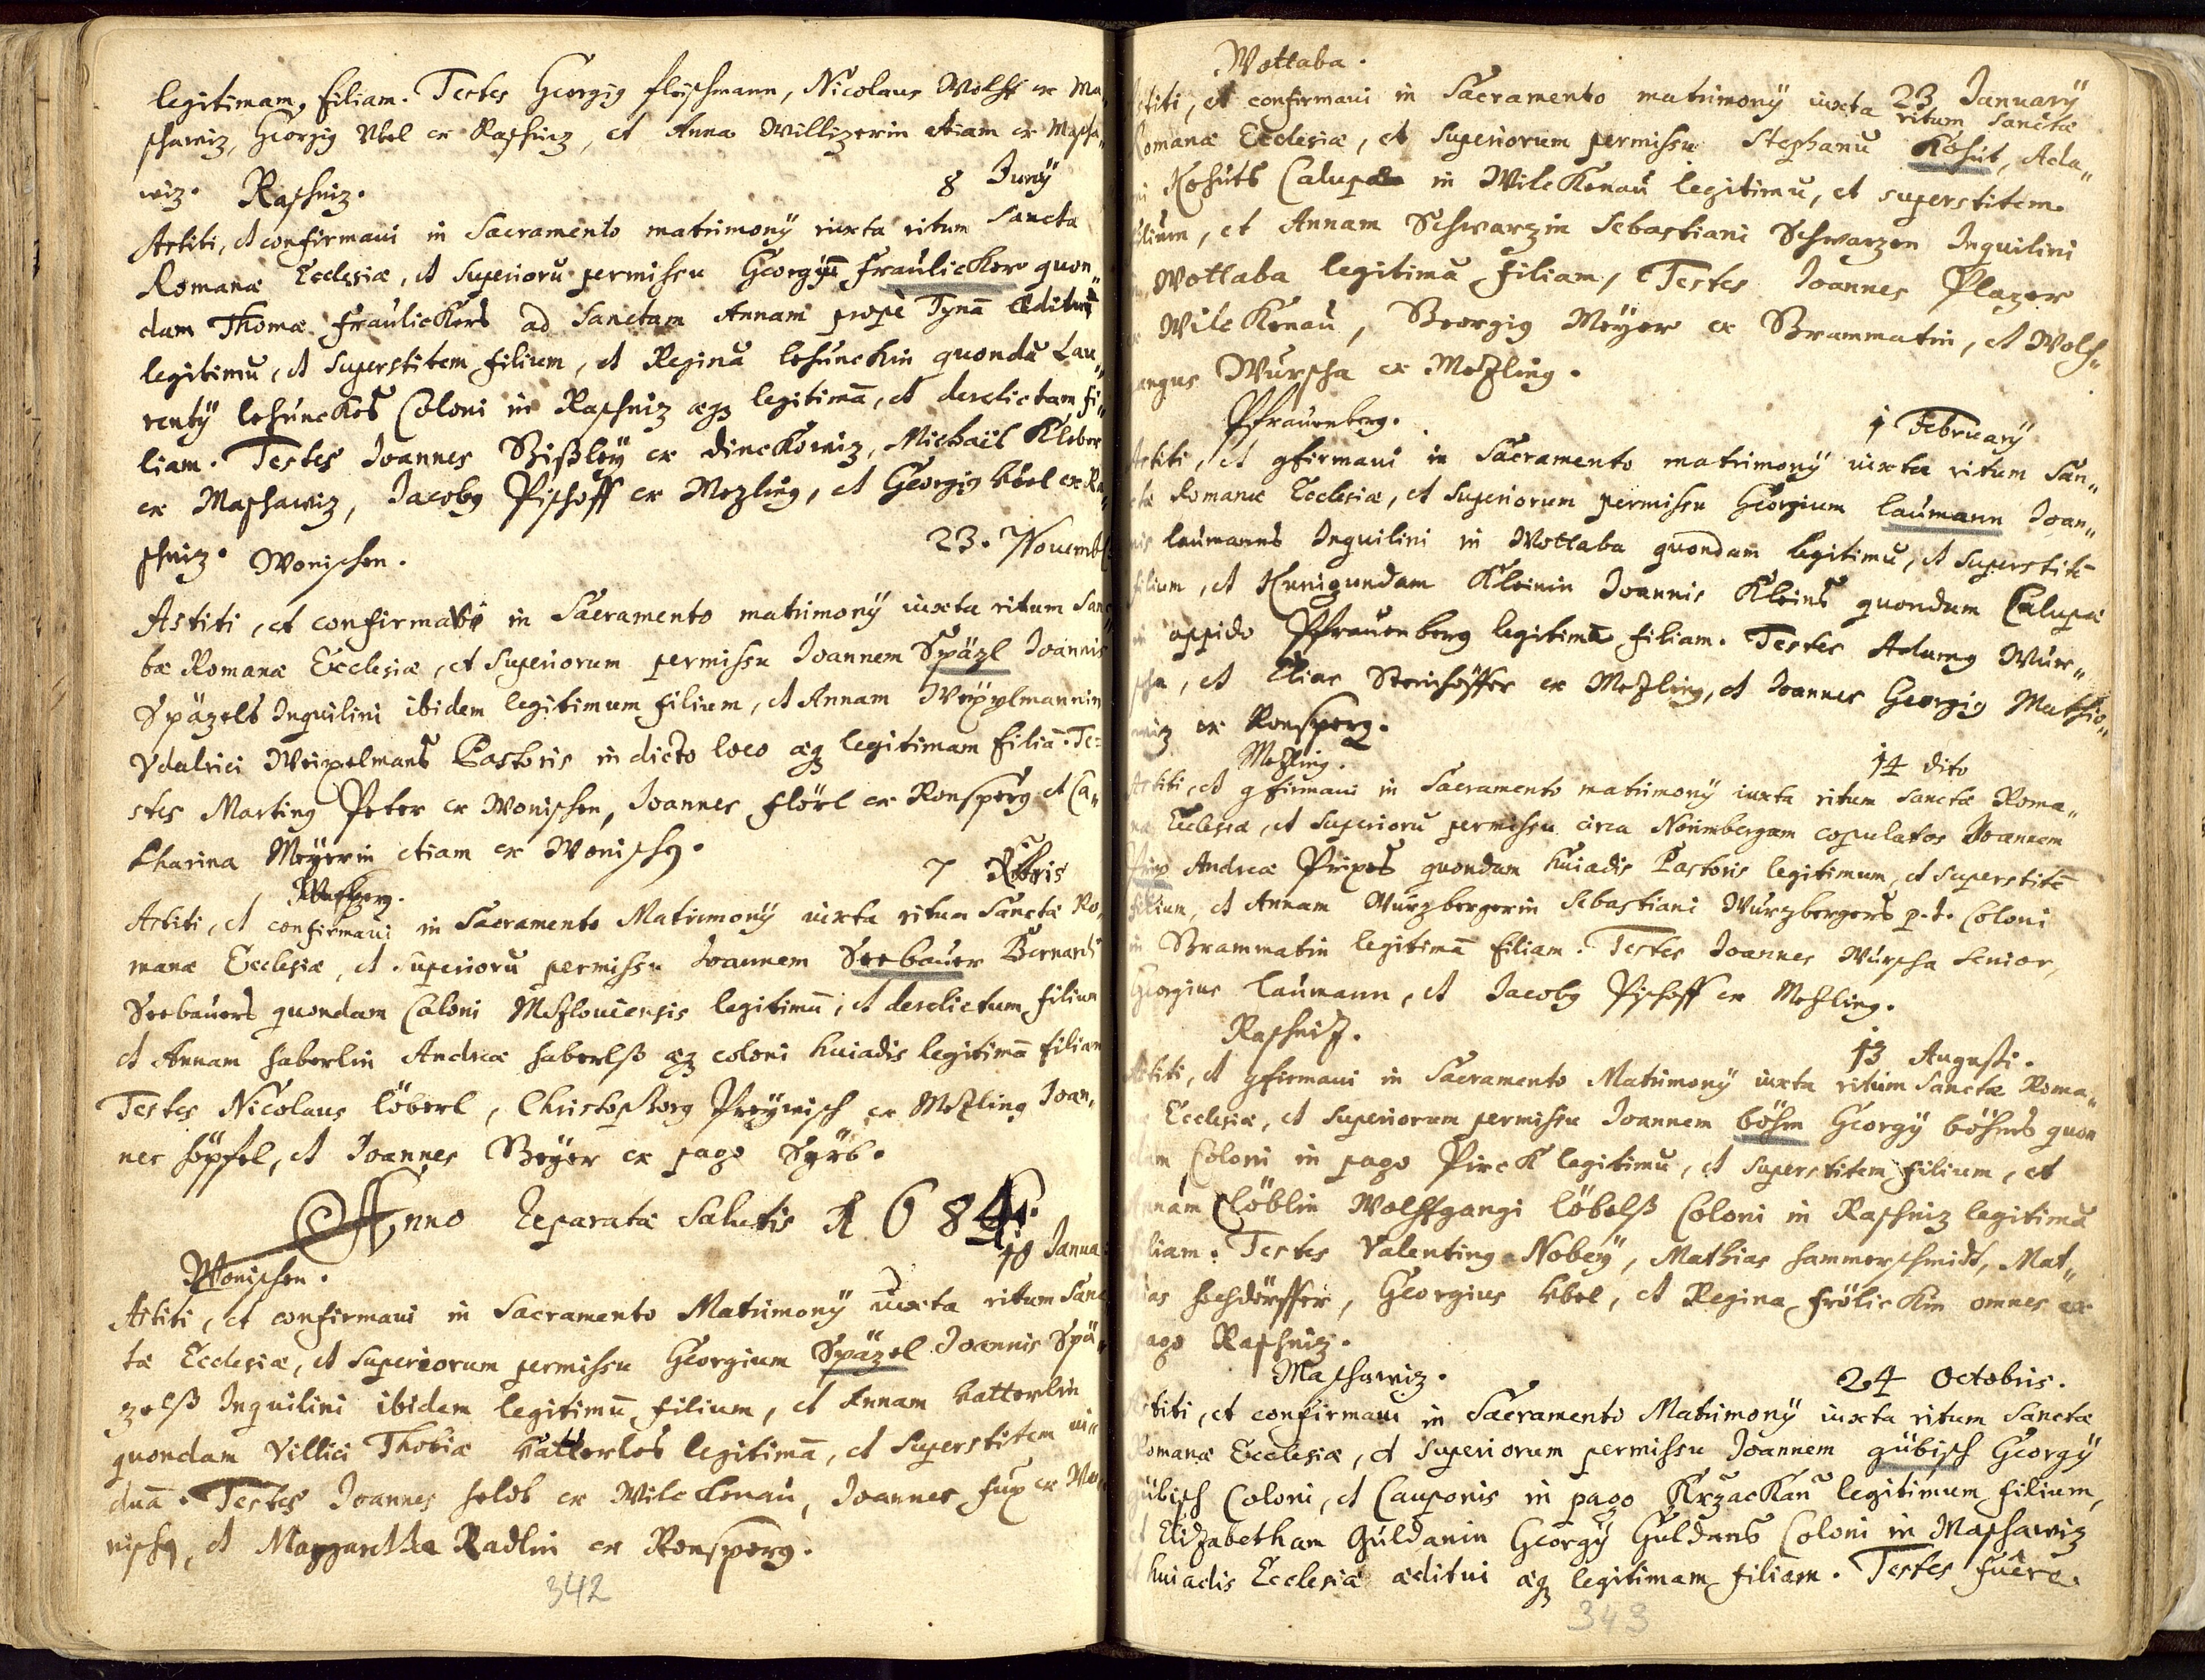 legitimam, filiam. Testes Georgiq fleischmann, Nicolaus Wolff ex Ma„
schawiz, Georgiq Vbel ex Raschniz, et Anna Willizerin etiam ex Mascha„
wiz. Raschniz. 8 Junÿ
Astiti, et confirmaui in Sacramento matrimonÿ iuxta ritum Sancta
Romanæ Ecclesiæ, et Superiorū permissu Georgiū fraulicker quon„
dam Thomæ fraulickers ad Sanctam Annam propè Tynā Æditui
legitimū, et Superstitem filium, et Reginā lehunckin quondā Lau„
rentÿ lehunckes Coloni in Raschniz æq legitimā, et derelictam fi„
liam. Testes Joannes Bißleÿ ex dinckowiz, Michaël Kleber
ex Maschawiz, Jacobq Pischoff ex Mezling, et Georgiq Vbel ex Ra„
schniz. Wonischen. 23. Nouemb
Astiti, et confirmavi in Sacramento matrimonÿ iuxta ritum San„
tæ Romanæ Ecclesiæ, et Superiorum permissu Joannem Späzl Joannis
Späzels Inquilini ibidem legitimum filium, et Annam Weyxlmannin
Vdalrici Weixelmans Pastoris in dicto loco æq legitimam filiā. Te„
stes Martinq Peter ex Wonischen, Joannes flörl ex Ronsperg et Ca„
tharina Meÿerin etiam ex Wonischq.
7 Xbris
Astiti, et confirmaui in Sacramento Matrimonÿ iuxta ritum Sanctæ Ro„
manæ Ecclesiæ, et Superiorū permissu Joannem Seebauer Bernardi
Seebauers quondam Coloni Mezlouiensis legitimū, et derelictum filium
et Annam haberlin Andreæ haberlß æq coloni huiadis legitimā filiam
Testes Nicolaus löberl, Christophorq Preÿwisch ex Mezling Joan„
nes höpfel, et Joannes Beÿer ex pago Sÿrb.
Anno Reparatæ Salutis 1684.
Wonischen. 18 Janua
Astiti, et confirmaui in Sacramento Matrimonÿ iuxta ritum Sanc
tæ Ecclesiæ, et Superiorum permissu Georgium Späzel Joannis Spä„
zelß Inquilini ibidem legitimū filium, et Annam hatterlin
quondam Villici Thobiæ hatterles legitimā, et Superstitem vi„
duā. Testes Joannes held ex Wilckenau, Joannes fux ex Wo„
nischq, et Margaretha Radlin ex Ronsperg.
342
Wottaba.
23 Januarÿ
Astiti, et confirmaui in Sacramento matrimonÿ iuxta ritum Sanctæ
Romanæ Ecclesiæ, et Superiorum permissu Stephanū Kohut, Ada„
mi Kohuts Calupæ in Wilckenau legitimū, et superstitem
filium, et Annam Schwarzin Sebastiani Schwarzen Inquilini
in Wottaba legitimā filiam, Testes Joannes Plazer
ex Wilckenau, Georgiq Meÿer ex Grammatin, et Wolf„
gangus Wurscha ex Mezling.
Pfrauenberg. 1 Februarÿ
Astiti, et gfirmaui in Sacramento matrimonÿ iuxta ritum San„
ctæ Romanæ Ecclesiæ, et Superiorum permissu Georgium laumann Joan„
nis laumanns Inquilini in Wottaba quondam legitimū, et Superstitē
filium, et Kunigundam Kleinin Joannis Kleins quondam Calupæ
in oppido Pfrauenberg legitimā filiam. Testes Adamq Wur„
scha, et Elias Steinhöffer ex Mezling, et Joannes Georgiq Mathio„
wiz ex Ronsperg.
Mezling. 14 dito
Astiti, et gfirmaui in Sacramento matrimonÿ iuxta ritum Sanctæ Roma„
næ Ecclesiæ, et Superiorū permissu circa Norimbergam copulatos Joannem
Pirp Andreæ Pirpes quondam huiadis Pastoris legitimum, et Superstitē
filium, et Annam Wurzbergerin Sebastiani Wurzbergers p. t. Coloni
in Grammatin legitimā filiam. Testes Joannes Wurscha Senior,
Georgius laumann, et Jacobq Pischoff ex Mezling.
Raschniz. 13 Augusti.
Astiti, et gfirmaui in Sacramento Matrimonÿ iuxta ritum Sanctæ Roma„
Ecclesiæ, et Superiorum permissu Joannem böhm Georgÿ böhms quon
dam Coloni in pago Pirck legitimū, et Superstitem filium, et
Annam löblin Wolffgangi löbelß Coloni in Raschniz legitimā
filiam. Testes Valentinq Nobeÿ, Mathias hammerschmidt, Mat„
hias hochdörffer, Georgius Vbel, et Regina frölickin omnes ex
pago Raschniz.
Maschawiz. 24 Octobris.
Astiti, et confirmaui in Sacramento Matrimonÿ iuxta ritum Sanctæ
Romanæ Ecclesiæ, et Superiorum permissu Joannem gübisch Georgÿ
gübisch Coloni, et Cauponis in pago Krzackau legitimum filium,
et Elizabetham Guldanin Georgÿ Guldans Coloni in Maschawiz
et huiadis Ecclesiæ æditui æq legitimam filiam. Testes fuêre
343